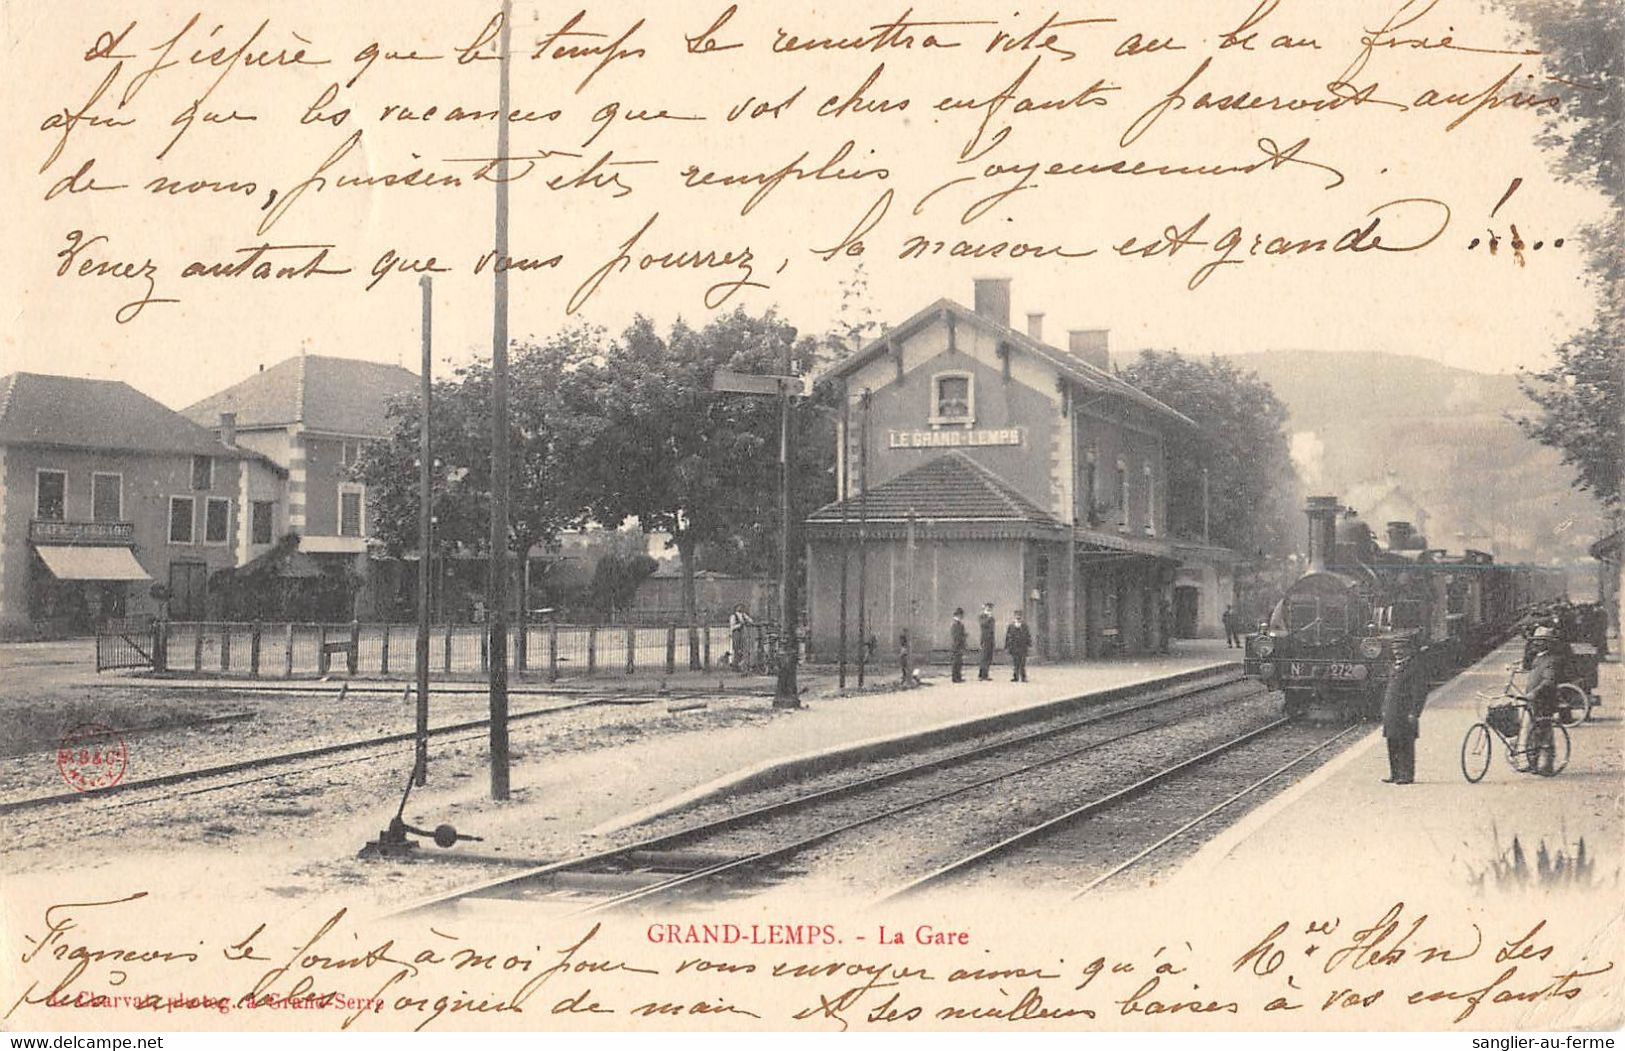 et j'espère que le temps se remettra vite au beau fixe
afin que les vacances que vos chers enfants passeront auprès
de nous, puissent être remplies joyeusement.
Venez autant que vous pourrez, la maison est grande !....
LE GRAND-LEMPS
N° 272
GRAND-LEMPS. - La Gare
Francois se joint à moi pour vous envoyer ainsi qu'à Mee Hen ses
plus poignées de main et ses meilleurs baisers à vos enfants
Charvat, photog. à Grand-Serre
sanglier-au-ferme